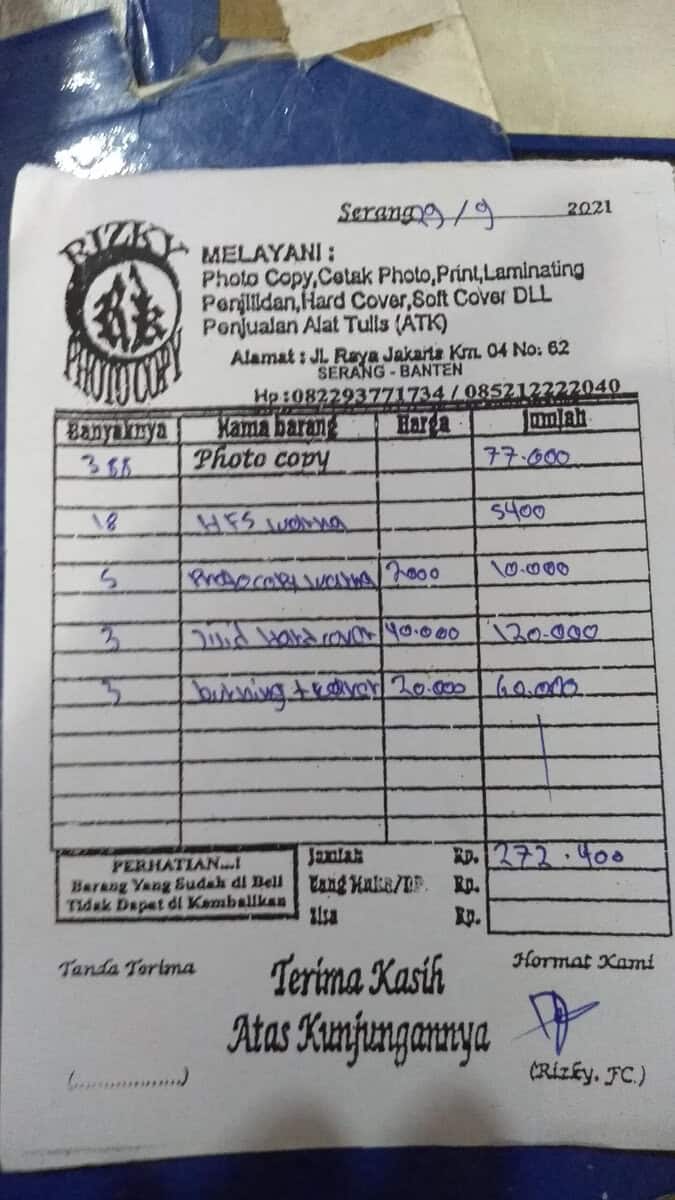 Serang 29/9 2021
RIZKY
Rk
PHOTO COPY
MELAYANI :
Photo Copy,Cetak Photo,Print,Laminating
Penjilidan,Hard Cover,Soft Cover DLL
Penjualan Alat Tulis (ATK)
Alamat : JL. Raya Jakarta Km. 04 No: 62
SERANG - BANTEN
Hp :082293771734 / 085212222040
Banyaknya Nama barang Harga Jumlah
388 Photo copy 77.000
18 HFS warna 5400
5 Photocopy warna 2000 10.000
3 Jilid Hardcover 40.000 120.000
3 burning + cover 20.000 60.000
PERHATIAN...!
Barang Yang Sudah di Beli
Tidak Dapat di Kembalikan
Jumlah Rp. 272.400
Uang Muka/DP. Rp.
Sisa Rp.
Tanda Terima
Terima Kasih
Atas Kunjungannya
Hormat Kami
(.................)
(Rizky. FC.)